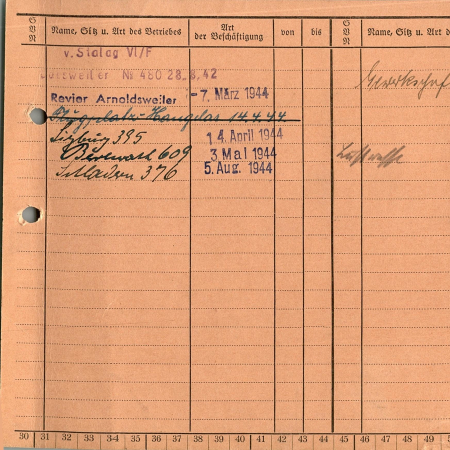 G V N
Name, Sitz u. Art des Betriebes
Art der Beschäftigung
von
bis
G V N
Name, Sitz u. Art d
v. Stalag VI/F
Arnoldsweiler № 480 28. 8. 42
Revier Arnoldsweiler - 7. März 1944
Flugplatz-Hangelar 14.4.44
395 14. April 1944
609 3. Mai 1944
376 5. Aug. 1944
Luftwaffe
30 31 32 33 34 35 36 37 38 39 40 41 42 43 44 45 46 47 48 49